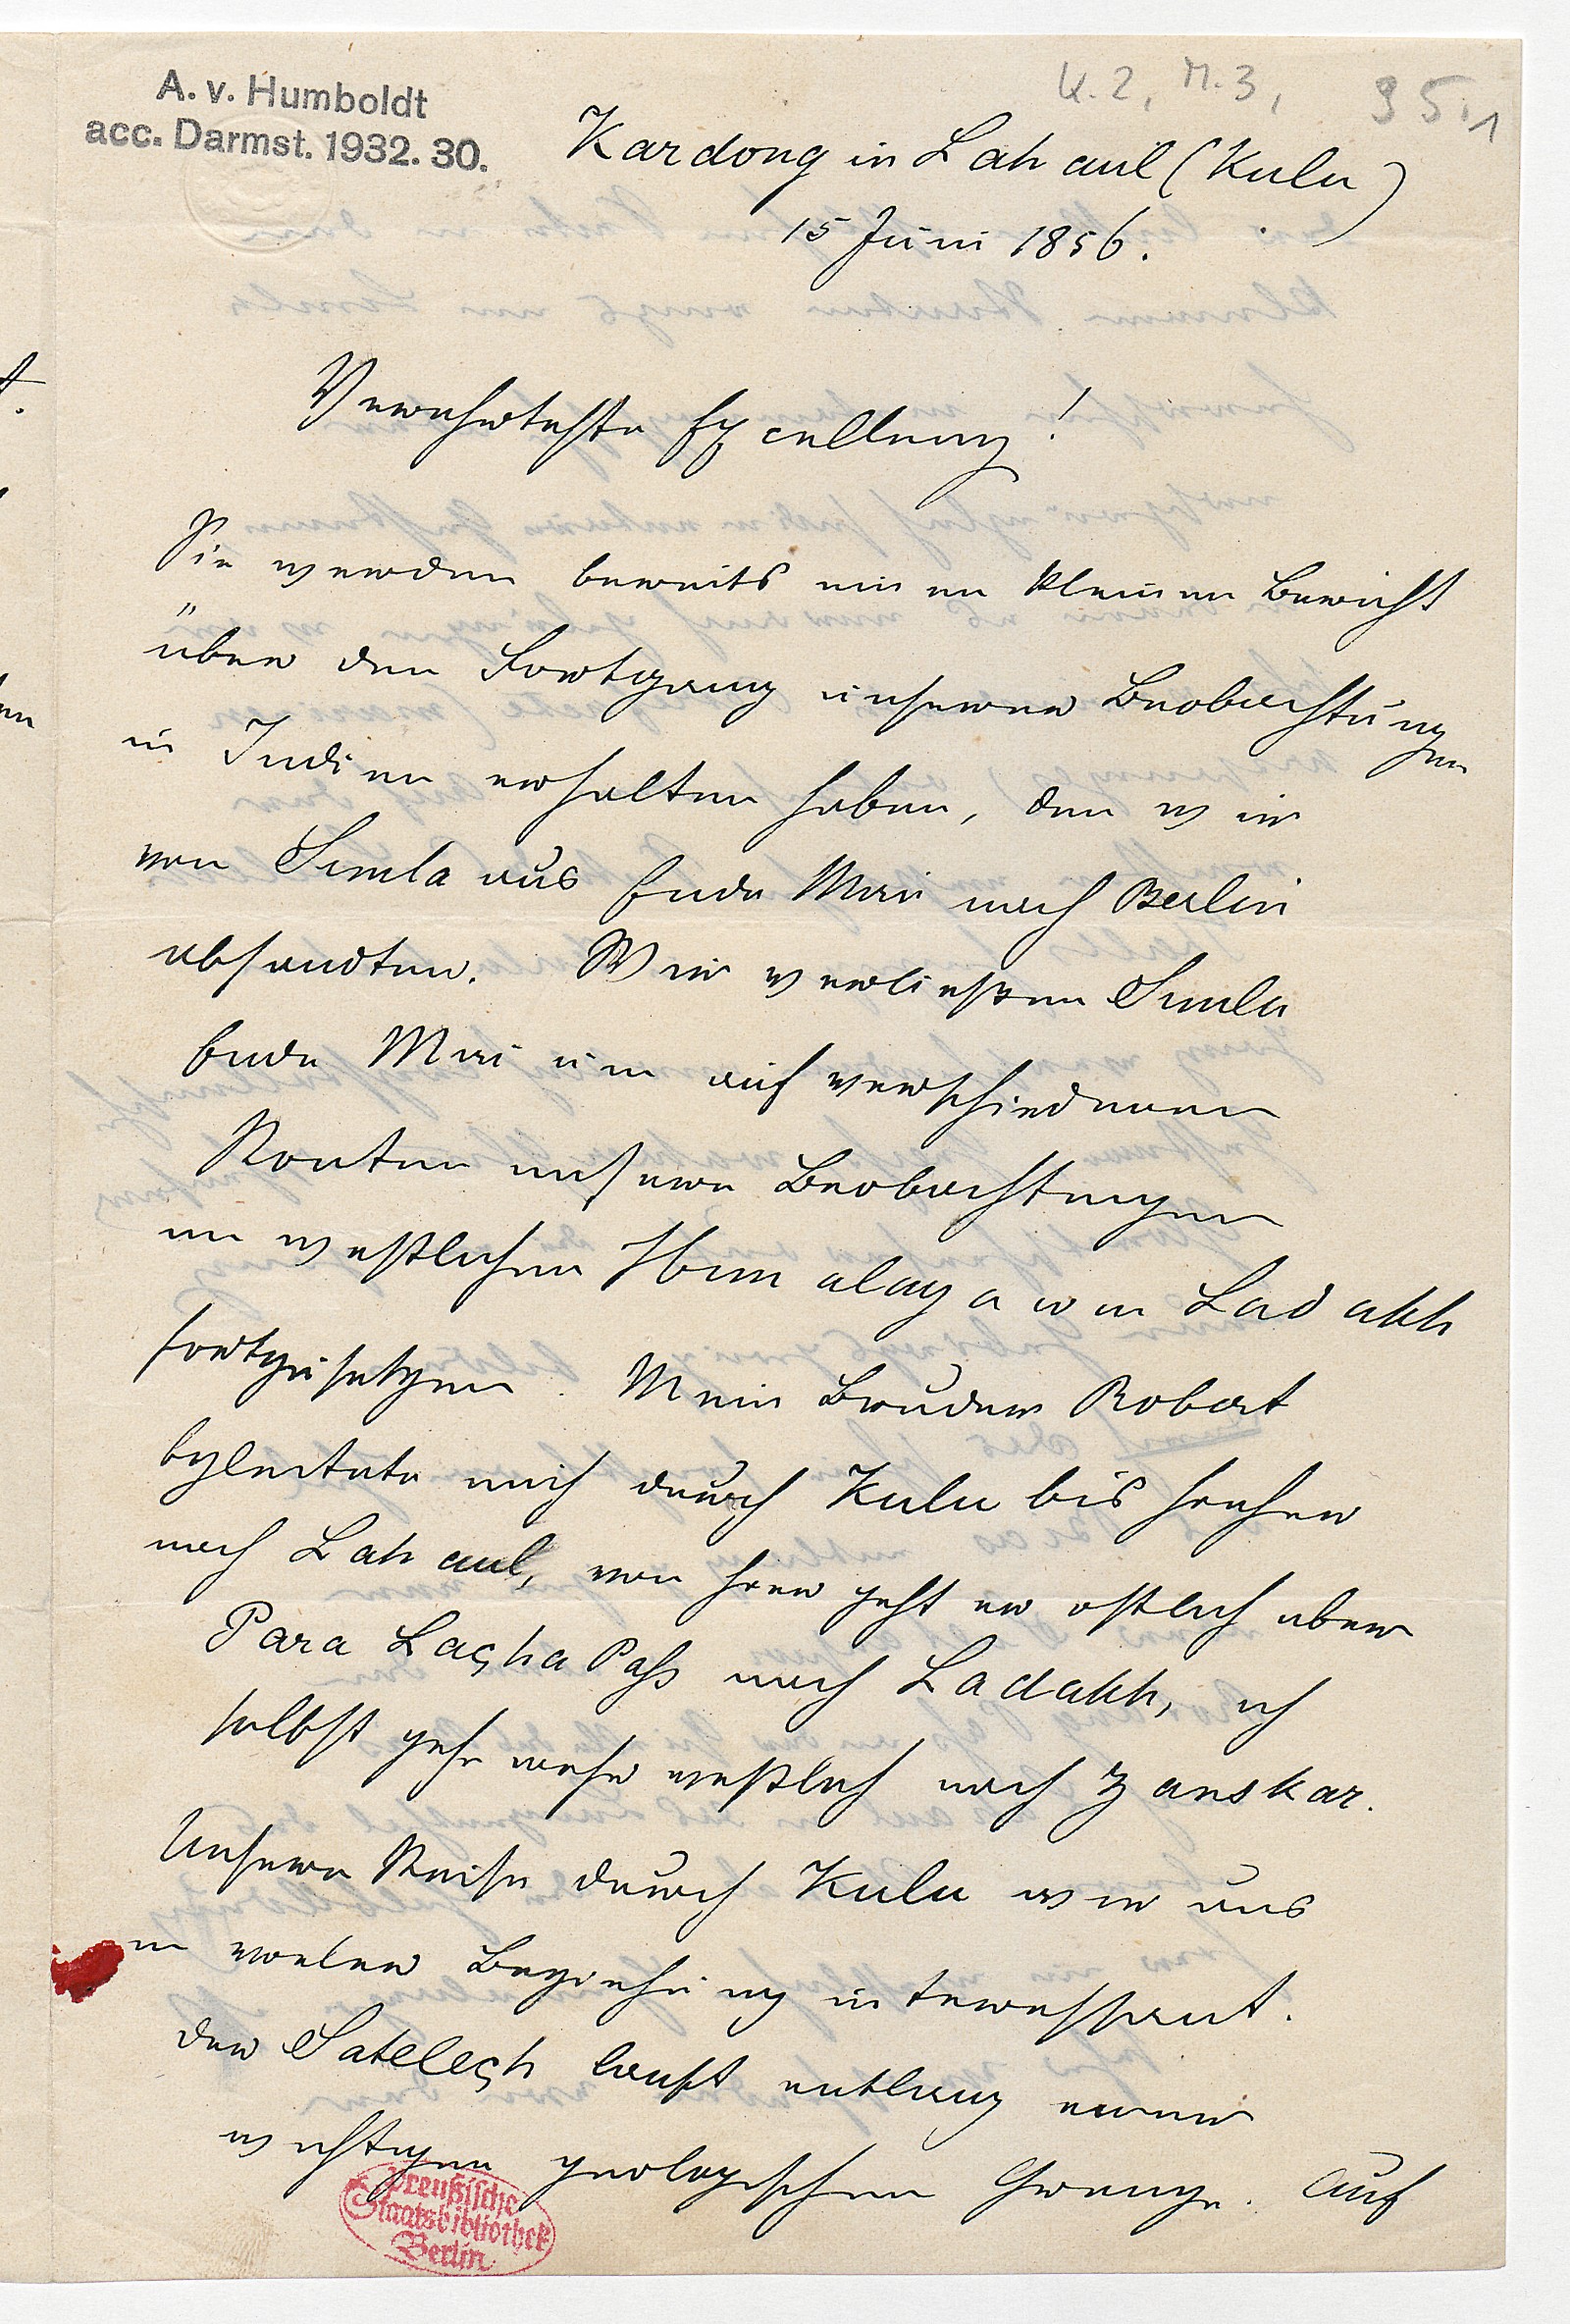 A. v. Humboldt
acc. Darmst. 1932. 30.
K. 2, M. 3, 95,1
Kardong in Lahaul (Kulu)
15 Juni 1856.
Verehrteste Excellenz!
Sie werden bereits einen kleinen Bericht
über den Fortgang unserer Beobachtungen
in Indien erhalten haben, den wir
von Simla aus Ende Mai nach Berlin
absandten. Wir verließen Simla
Ende Mai um auf verschiedenen
Routen unsere Beobachtungen
im westlichen Himalaya u in Ladakh
fortzusetzen. Mein Bruder Robert
begleitete mich durch Kulu bis hieher
nach Lahaul, von hier geht er ostlich uber
Para Lacha Paß nach Ladakh, ich
selbst gehe mehr westlich nach Zanskar.
Unsere Reise durch Kulu war uns
in vieler Beziehung interessant.
der Satelech lauft entlang einer
wichtigen geologischen Grenze. Auf
Preußische
Staatsbibliothek
Berlin